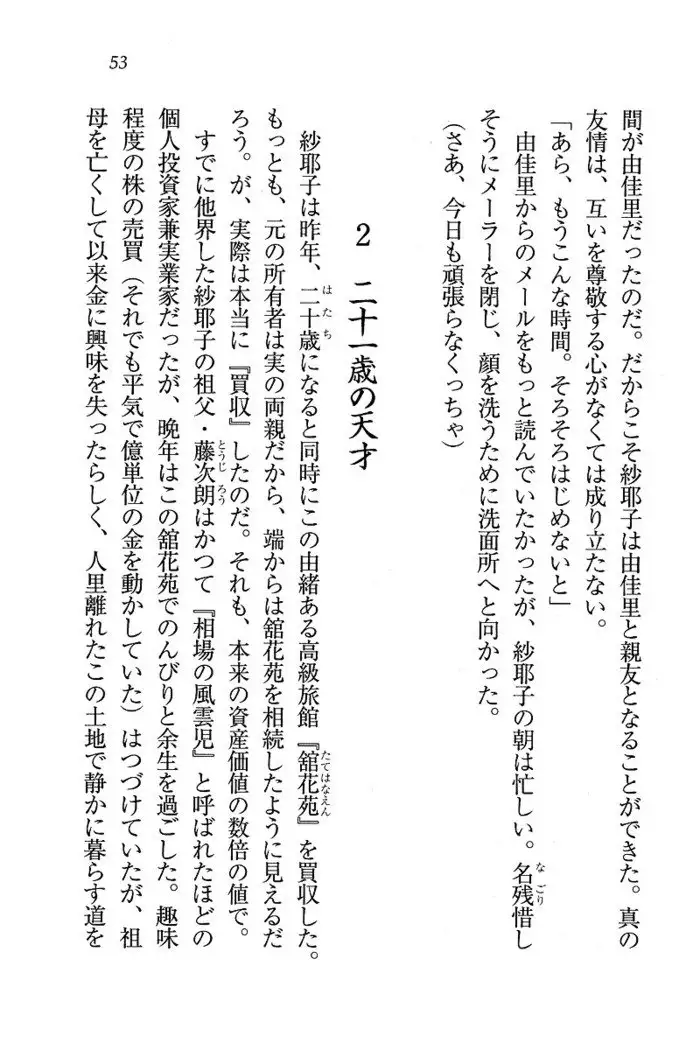 53
間が由佳里だったのだ。だからこそ紗耶子は由佳里と親友となることができた。真の
友情は、互いを尊敬する心がなくては成り立たない。
「あら、もうこんな時間。そろそろはじめないと」
由佳里からのメールをもっと読んでいたかったが、紗耶子の朝は忙しい。名残惜し
そうにメーラーを閉じ、顔を洗うために洗面所へと向かった。
(さあ、今日も頑張らなくっちゃ)
2 二十一歳の天才
紗耶子は昨年、二十歳になると同時にこの由緒ある高級旅館『舘花苑』を買収した。
もっとも、元の所有者は実の両親だから、端からは舘花苑を相続したように見えるだ
ろう。が、実際は本当に『買収』したのだ。それも、本来の資産価値の数倍の値で。
すでに他界した紗耶子の祖父・藤次朗はかつて『相場の風雲児』と呼ばれたほどの
個人投資家兼実業家だったが、晩年はこの舘花苑でのんびりと余生を過ごした。趣味
程度の株の売買(それでも平気で億単位の金を動かしていた)はつづけていたが、祖
母を亡くして以来金に興味を失ったらしく、人里離れたこの土地で静かに暮らす道を